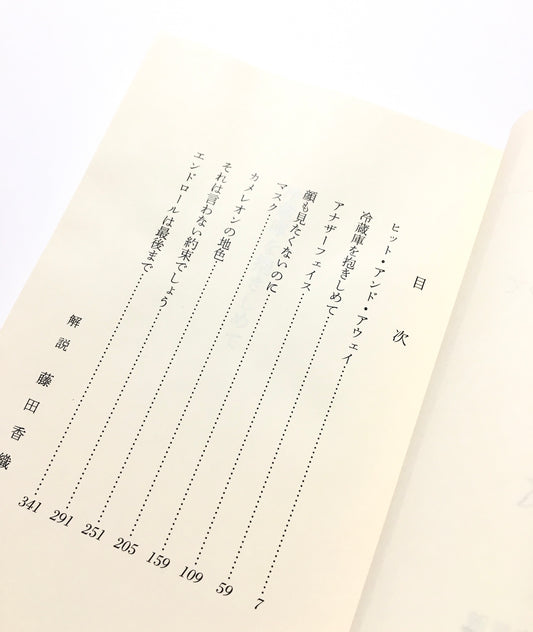 目次
ヒット・アンド・アウェイ 7
冷蔵庫を抱きしめて 59
アナザーフェイス 109
顔も見たくないのに 159
マスク 205
カメレオンの地色 251
それは言わない約束でしょう 291
エンドロールは最後まで 341
解説 藤田香織